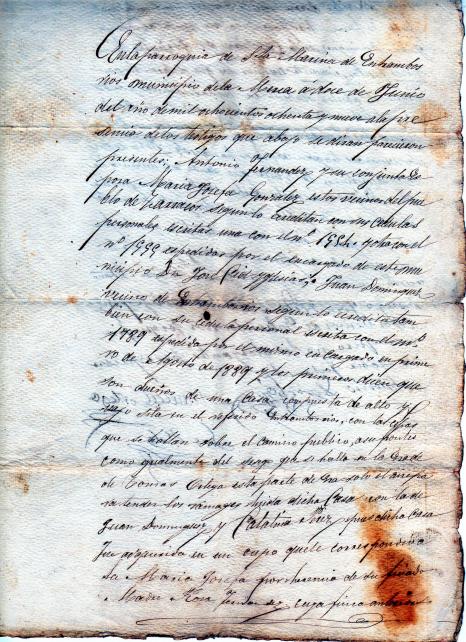 En la parroquia de Sta Marina de Entrambos
rios municipio de la Merca á doce de Junio
del año de mil ochocientos ochenta y nueve a la pre
sencia de los testigos que abajo se diran parecieron
presentes; Antonio Fernandez y su conjunta Es
posa Maria Josefa Gonzalez estos vecinos del pue
blo de segun lo acreditan con sus cedulas
personales escritas una con el nº 1554 y otra con el
nº 1555 espedidas por el encargado de este mu
nicipio Dn José Juan Dominguez
vecino de Entrambosrios segun lo acredita tam
bien con su cedula personal escrita con el nº
1789 espedida por el mismo encargado en prime
ro de Agosto de 1888 y los primeros dicen que
son dueños de una Casa compuesta de alto y
bajo sita en el referido Entrambosrios, con las
que se hallan sobre el camino publico, asus
como igualmente del que se halla en la
de Tomas Ortega esta parte de
tender los ramages linda dicha Casa con la de
Juan Dominguez y Catalina pues dicha Casa
fue adquirida en un cupo que le correspondió a
la Maria Josefa por herencia de su finada
Madre Rosa cuya finca